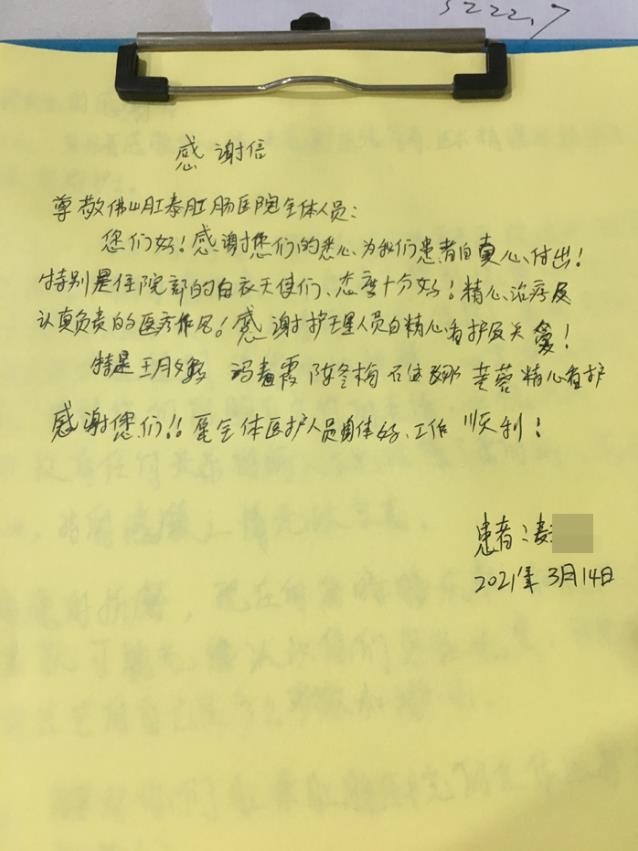 3222.7
感谢信
尊敬佛山肛泰肛肠医院全体人员：
您们好！感谢您们的悉心、为我们患者的真心、付出！
特别是住院部的白衣天使们、态度十分好！精心、治疗及
认真负责的医疗作风！感谢护理人员的精心看护及关爱！
特是王月 冯春霞 陈冬梅 芙蓉 精心看护
感谢您们！！愿全体医护人员身体好、工作顺利！
患者：
2021年3月14日